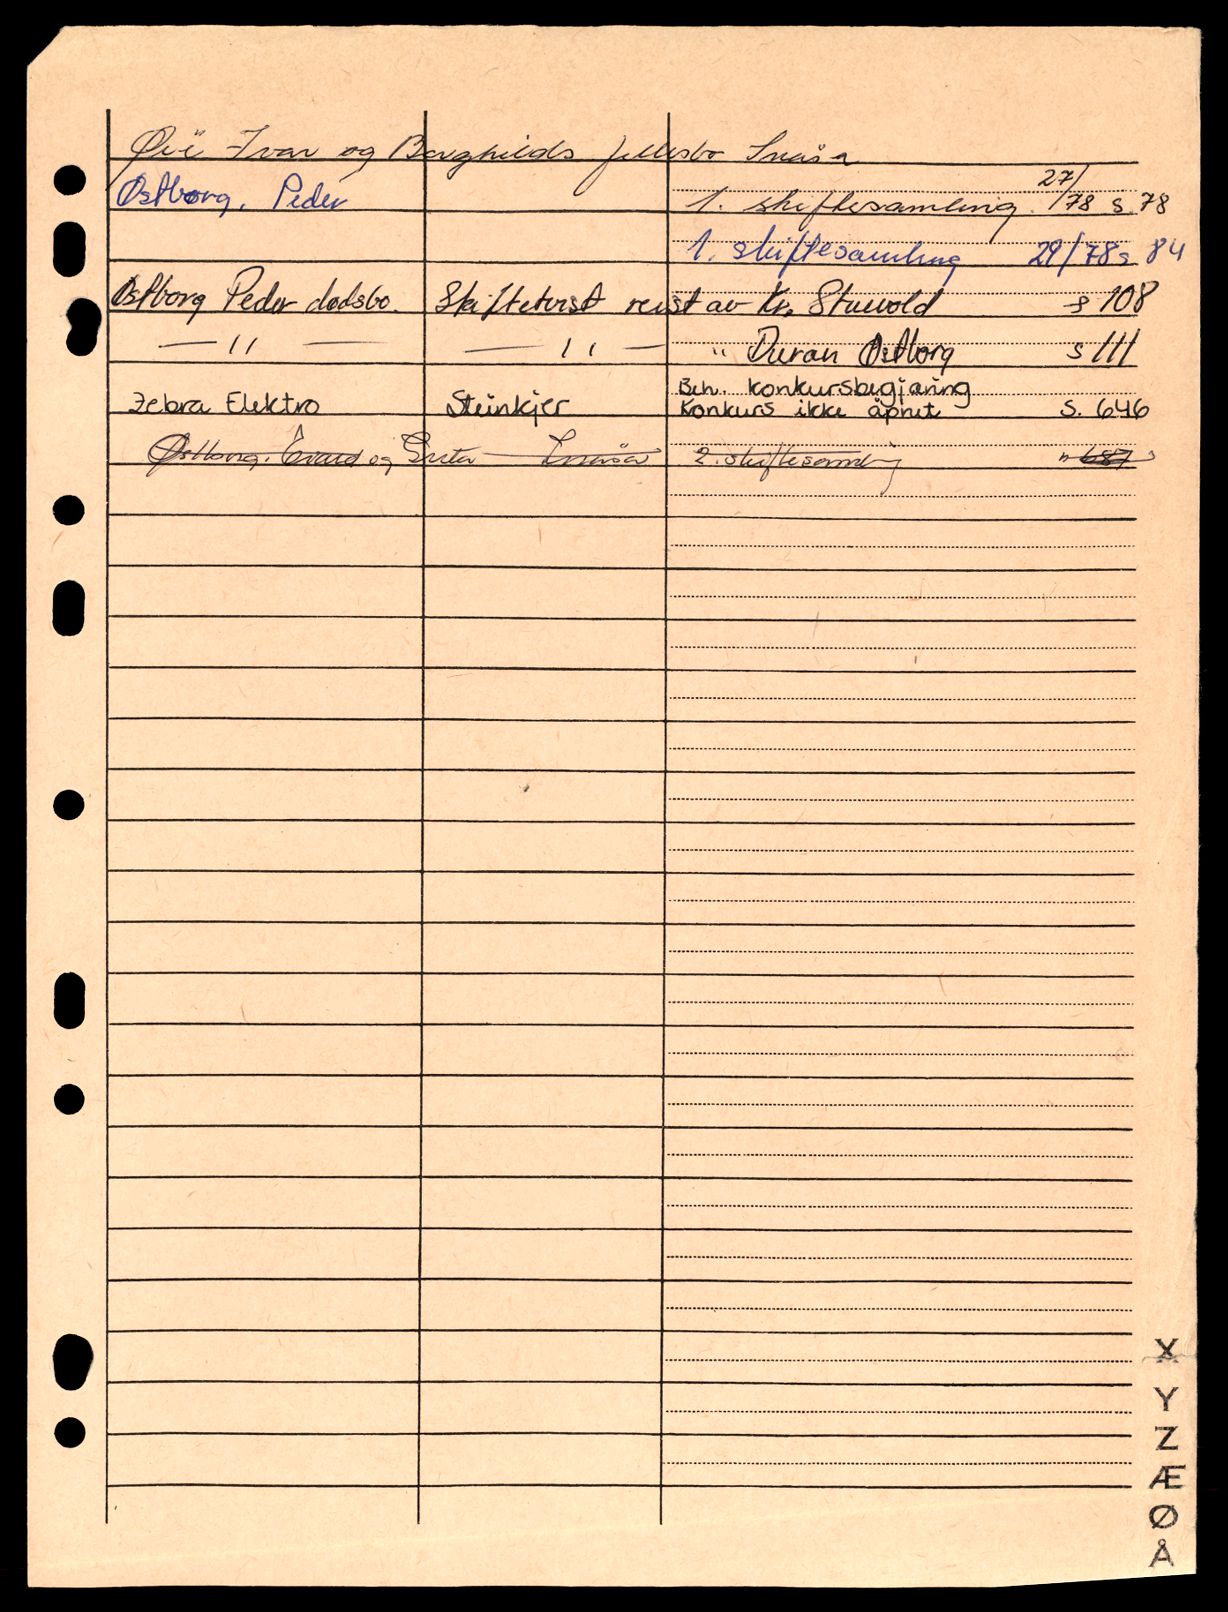 Øvi Ivar og Borghilds fellesbo Snåsa
Østborg, Peder 1. skiftesamling. 27/78 s. 78
1. skiftesamling 29/78 s. 84
Østborg Peder dødsbo. Skiftetvist reist av Kr. Stuevold s 108
— " — — " — " Duran Østborg s 111
Zebra Elektro Steinkjer Beh. konkursbegjæring
Konkurs ikke åpnet s. 646
Østborg, Evald og Snåsa 2. skiftesamling " 687
X
Y
Z
Æ
Ø
Å